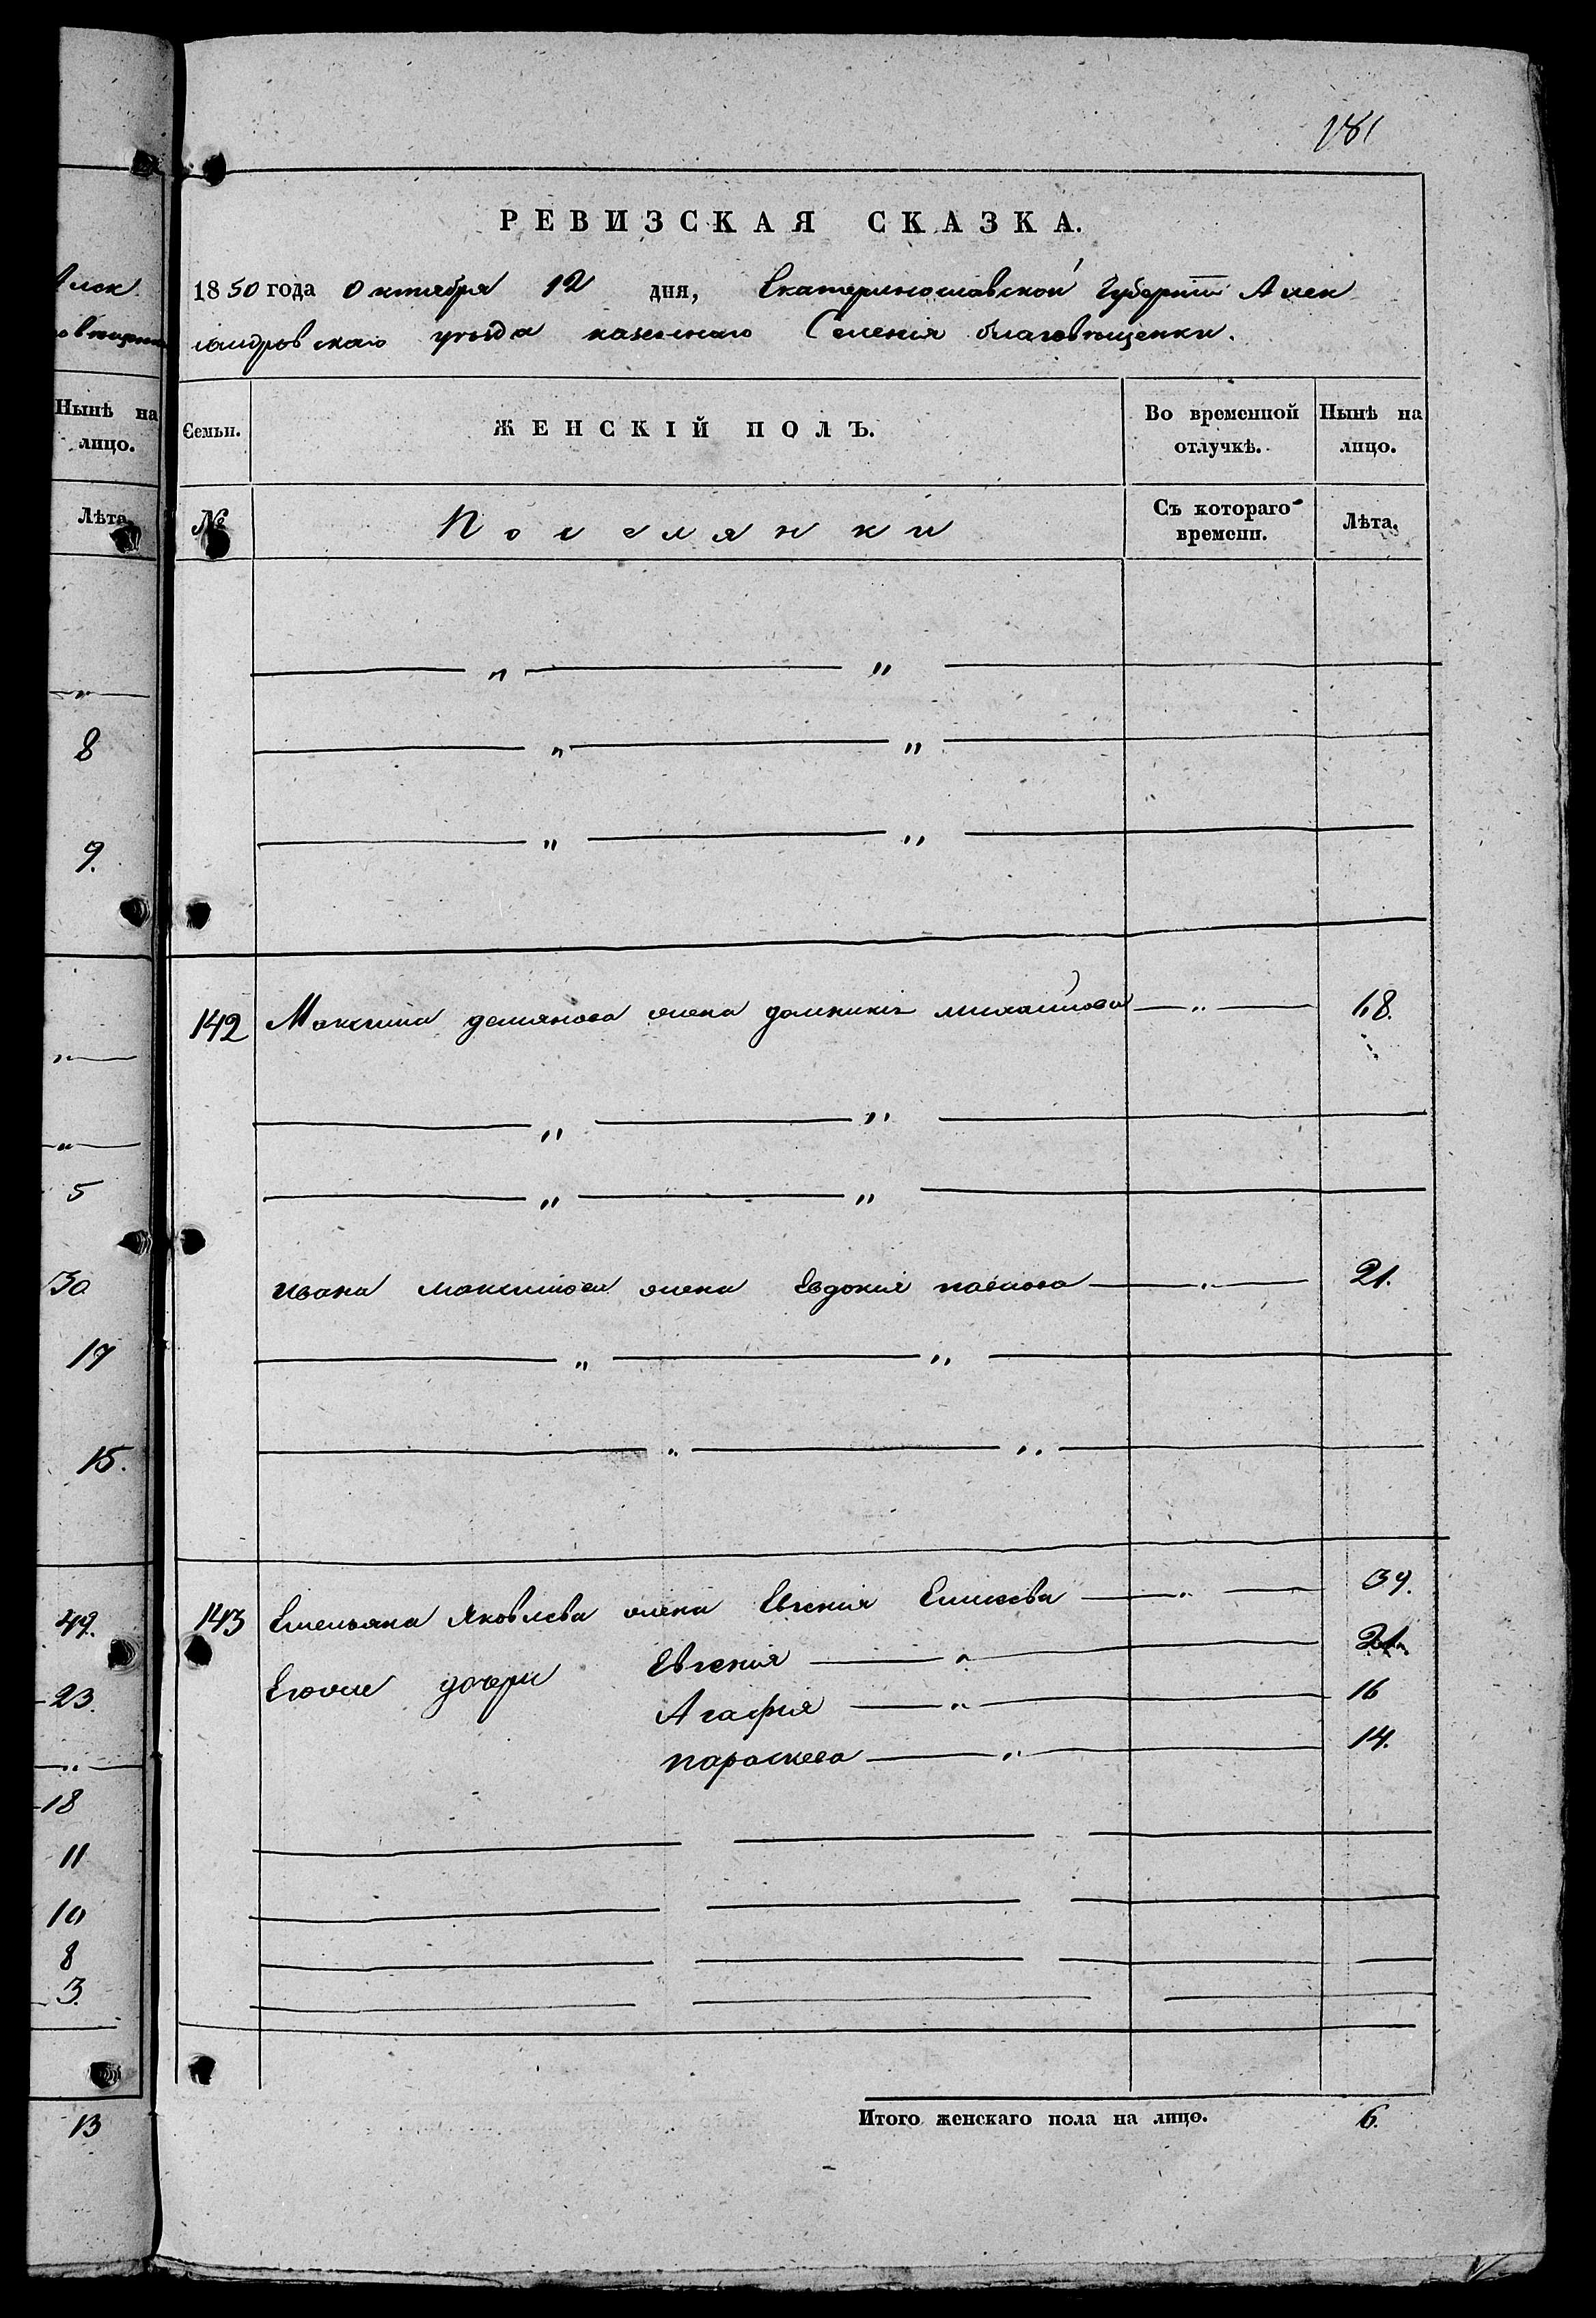 181
РЕВИЗСКАЯ СКАЗКА.
1850 года Октября 12 дня, Екатеринославской Губернии Алек
сандровскаго уѣзда казеннаго Селенія благовѣщенки.
Нынѣ на лицо.
Лѣта.
8
9.
5
30
17
15.
49.
23.
18
11
10
8
3.
13
Семьи.
ЖЕНСКІЙ ПОЛЪ.
Во временной отлучкѣ.
Нынѣ на лицо.
№
Поселянки
Съ котораго времени.
Лѣта.
142 Максима демянова жена домникія михайлова — „ — 68.
ивана максимова жена Евдокия павлова — „ — 21.
143 Емельяна Яковлева жена Евгения Елисеева — „ — 39.
Еговые дочери Евгения — „ — 21.
Агафия — „ — 16
параскева — „ — 14.
Итого женскаго пола на лицо. 6.